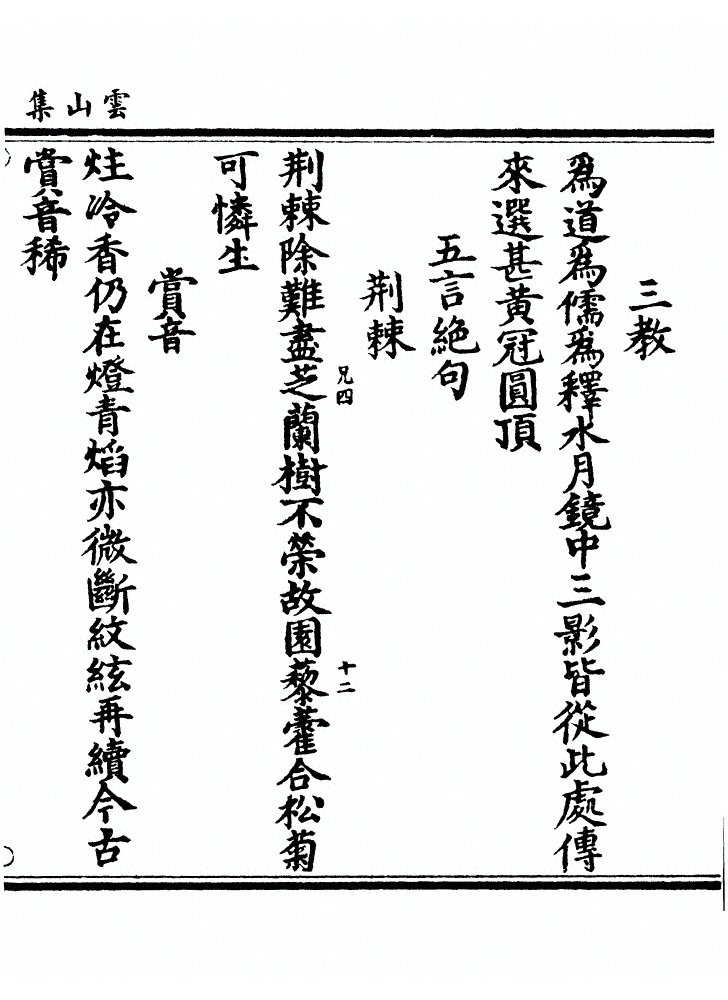 雲山集
三教
爲道爲儒爲釋水月鏡中三影皆從此處傳
來選甚黃冠圓頂
五言絕句
荆棘
兄四
十二
荆棘除難盡芝蘭樹不榮故園藜藿合松菊
可憐生
賞音
炷冷香仍在燈青焰亦微斷紋絃再續今古
賞音稀